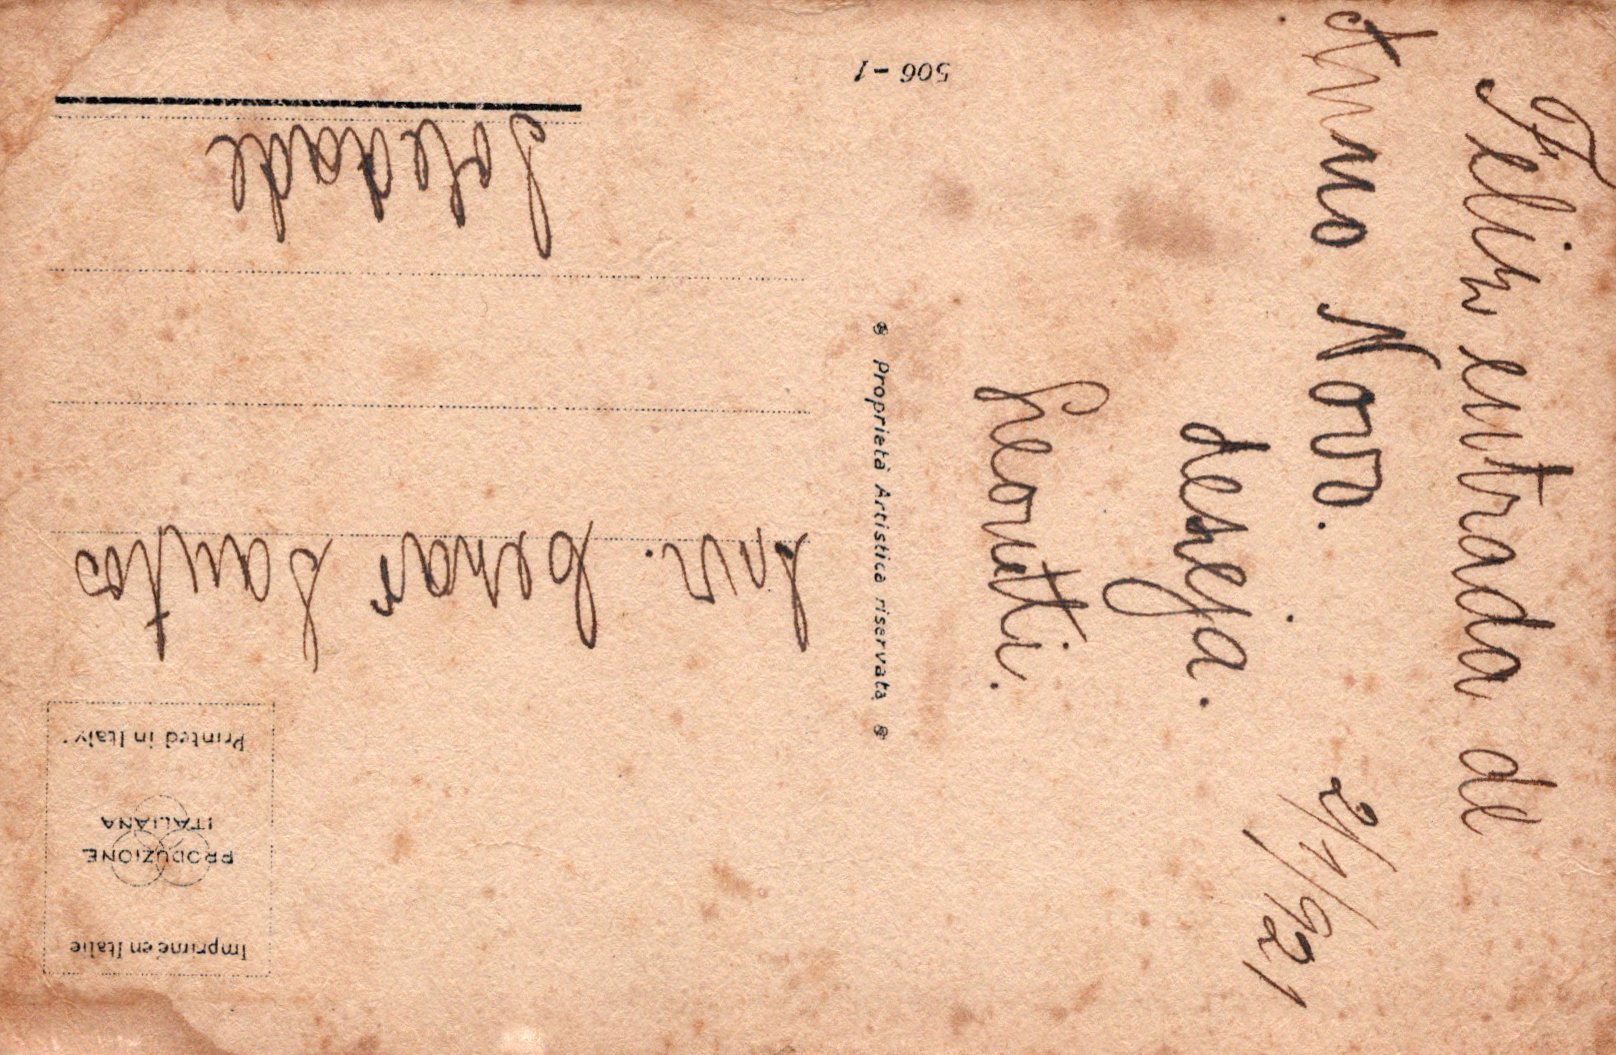 Feliz entrada de
Anno Novo.
deseja.
Leonti.
2/1/921
Proprietà Artistica riservata
Imprimé en Italie
PRODUZIONE
ITALIANA
Printed in Italy
Snr. Cesar Santos
Soledade
506 - 1